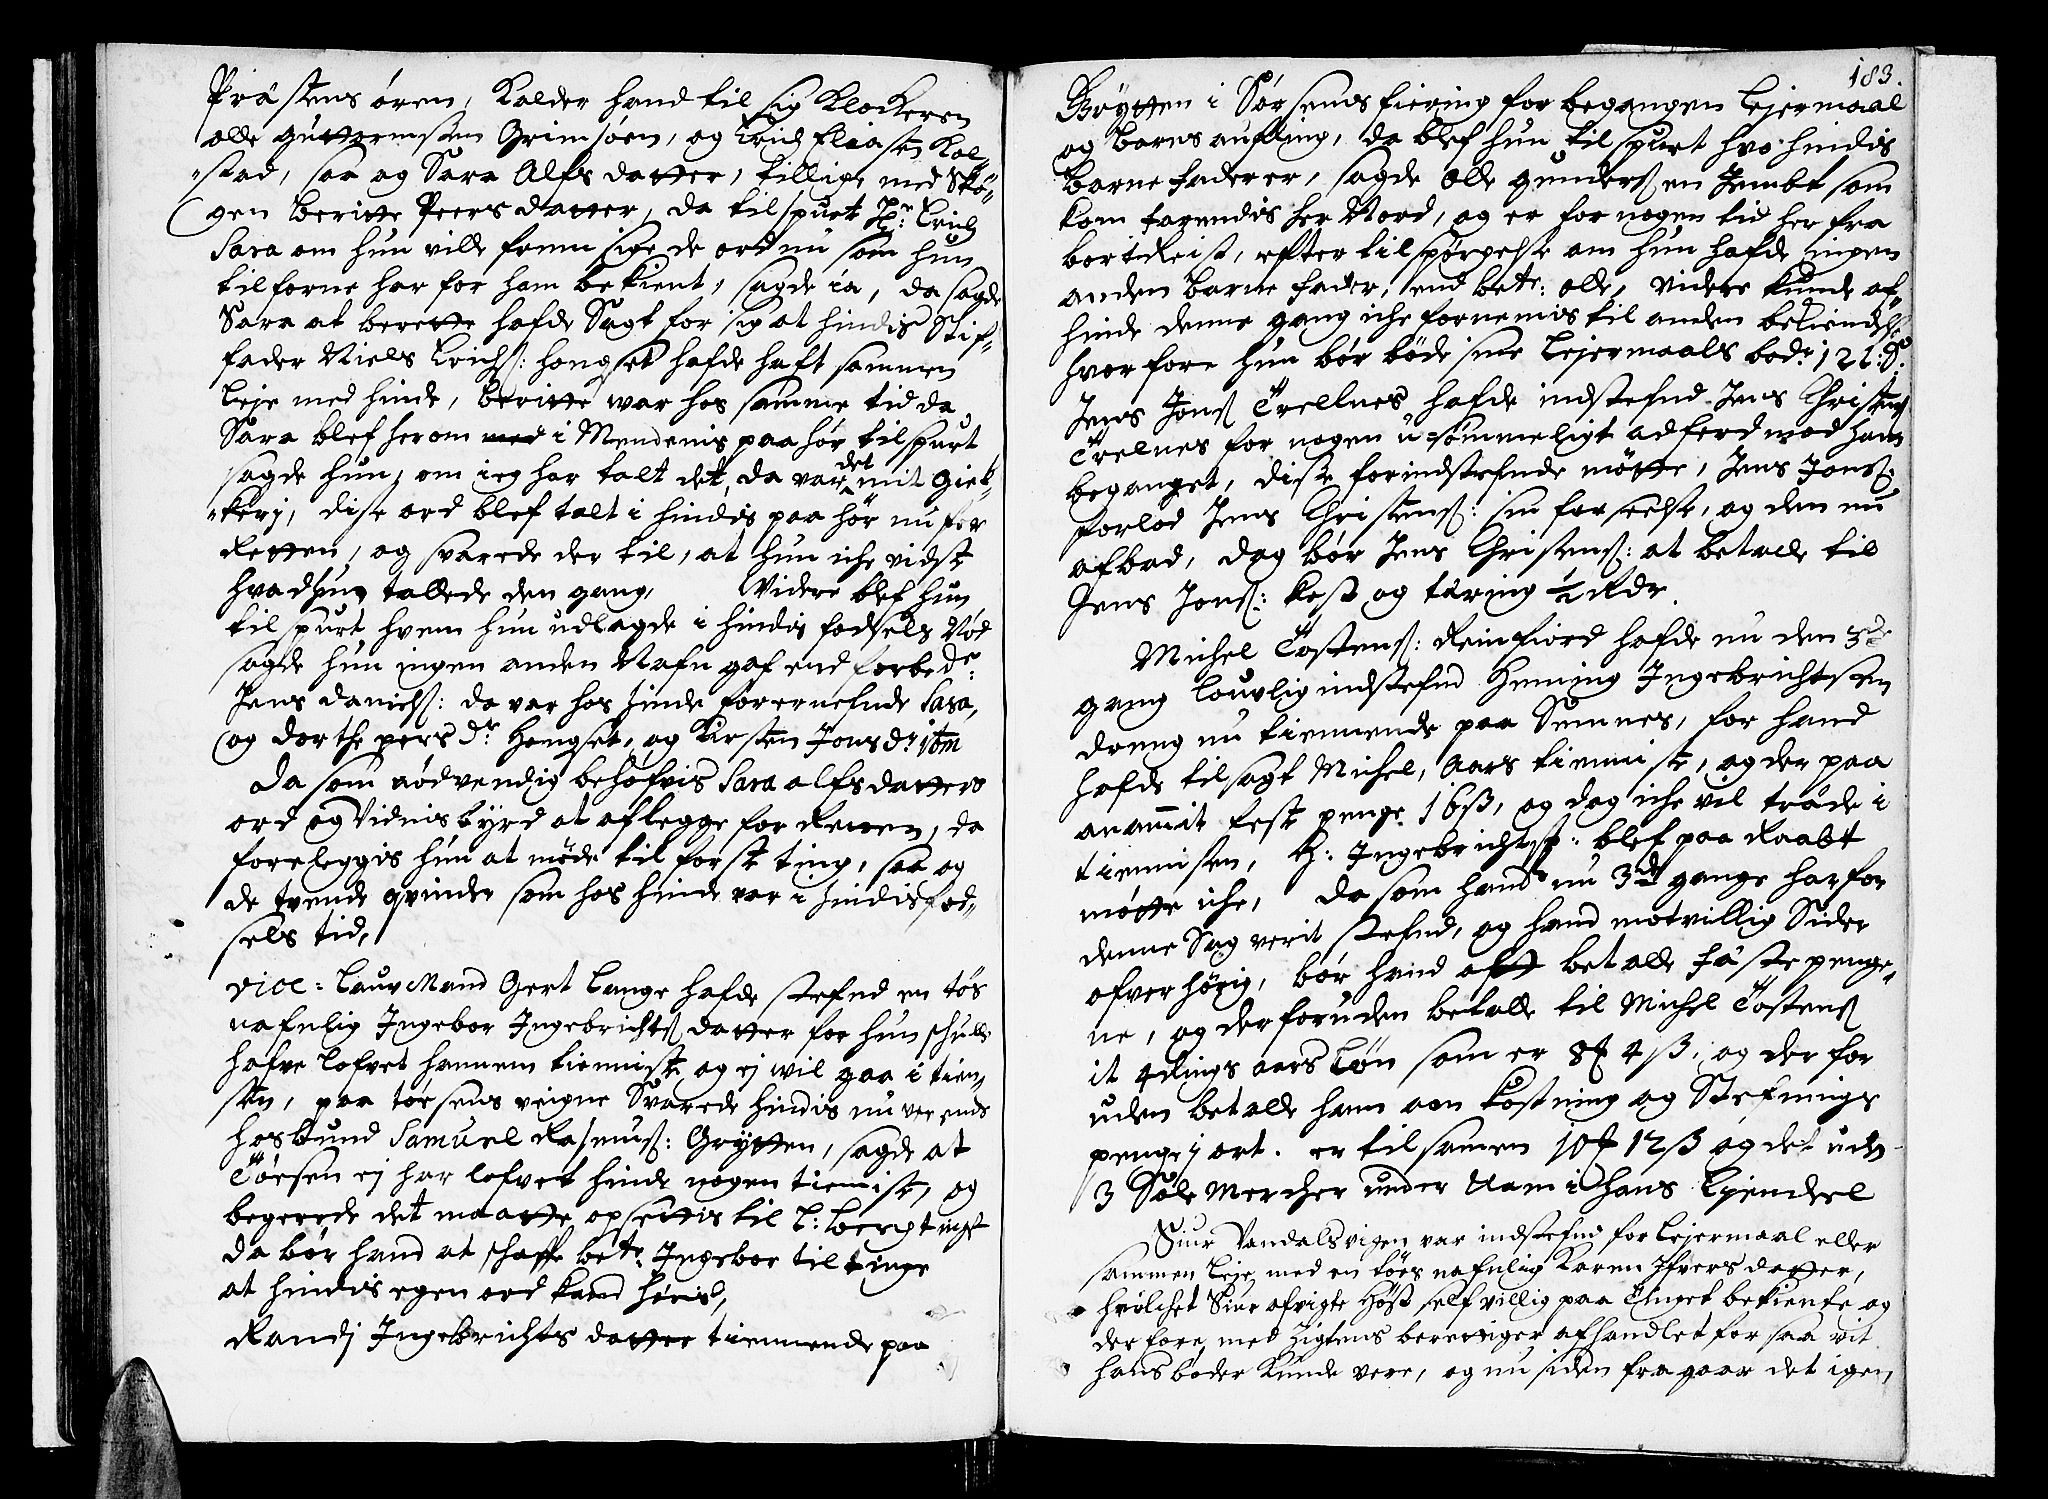 Præstens ören, Kalder hand til sig Klockeren
olle guttermsen Grimsöen, og Erich Eliasen Kol-
-stad, saa og Sara Alfs datter, tillige med Skö-
gen beritte Peers datter, da tilspurt Hr: Erich
Sara om hun ville fremsige de ord nu som hun
tilforne har for ham bekient, sagde ia, da sagde
Sara at beritte hafde Sagt for sig at hindis Stif-
fader Niels Erichs: hongset hafde haft sammen
Leje med hinde, beritte war hos samme tid da
Sara blef herom med i Mendenis paahör tilspurt
sagde hun, om ieg har talt det, da var det mit Giek-
-keri, dise ord blef talt i hindis paa hör nu for
Retten, og svarede der til, at hun iche vidste
hvad hun tallede den gang, Videre blef hun
tilspurt hvem hun udlagde i hindis fodsels Nöd
sagde hun ingen anden Nafn gaf end forbede:
Jens Daniels: da var hos hinde forernefnde Sara,
og dorthe pers dr: Hongset, og Kirsten Jons dr: itm
Da som nödvendig behöfvis Sara alfs datters
ord og Vidnisbyrd at aflegge for Retten, da
foreleggis hun at möde til förste ting, saa og
de tvende qvinder som hos hinde var i hindis föd-
sels tid,
vice: LaugMand Gert Lange hafde stefnd en tös
nafnlig Ingebor Ingebrichts datter for hun schulle
hafve lofvet hannem tienniste og ej wil gaa i tien-
sten, paa tösens veigne Svarede hindis nu verends
hosbund Samuel Rasmus: Grytten, sagde at
Töesen ej har lofvet hinde nogen tieniste, og
begerede det maatte opsettis til L: bergtinget
da bör hand at schaffe bete: Ingebor til tinge
at hindis egen ord kand höris,
Randj Ingebrichts datter tiennende paa
183.
Gröytten i Sörsens fiering for begangen Lejermaal
og barns aufling, da blef hun tilspurt hvo hindis
barnefader er, sagde Olle gunders en Jembt som
kom farendis her Nord, og er for nogen tid her fra
bortReist, efter tilspörgelse om hun hafde ingen
anden barne fader, end bete: olle, Videre kunde af
hinde denne gang iche fornemis til anden bekiendelse
hvorfore hun bör böde sine Lejermaals bode 12 l: S:
Jens Jons Trellnes hafde indstefnd Jens Christens
Trelnes for nogen usömmeligt adferd mod ham
beganget, dise forindstefnde mötte, Jens Jons:
forlod Jens Christens: sin forseelse, og den nu
afbad, dog bör Jens Christens: at betale til
Jens Jons: kost og tæring ½ Rdr.
Michel Tostens: Reinfiord hafde nu den 3de
gang Louvlig indstefnd Henning Ingebrichtsen
dreng nu tiennende paa Semnes, for hand
hafde tilsagt Michel, Aars tienniste, og der paa
anammit feste penge 16 ß, og dog iche vil træde i
tiennisten, H: Ingebrichtsß: blef paa Raabt
mötte iche, da som hand nu 3de gange har for
denne Sag verit stefnd, og hand motvillig Sider
ofverhörig, bör hand at betalle fæstepenge-
ne, og derforuden betalle til Michel Tostens
it 4dings aars Lön som er 8 ₰ 4 ß, og der for
uden betalle ham aan kostning og Stefnings
penge j ort. er tilsamen 10 ₰ 12 ß og det uden
3 Söle Mercher under Nam i hans Ejendeel
Siur Vandalsvigen var indstefnd for Lejermaal eller
sammen Leje med en töes nafnlig Karen Ifvers datter,
hvilchet Siur afvigte Höst self villig paa Tinget bekiente og
derfore med Figtens beretiger afhandlet for saa vit
hans bøder kunde vere, og nu siden fragaar det igen,